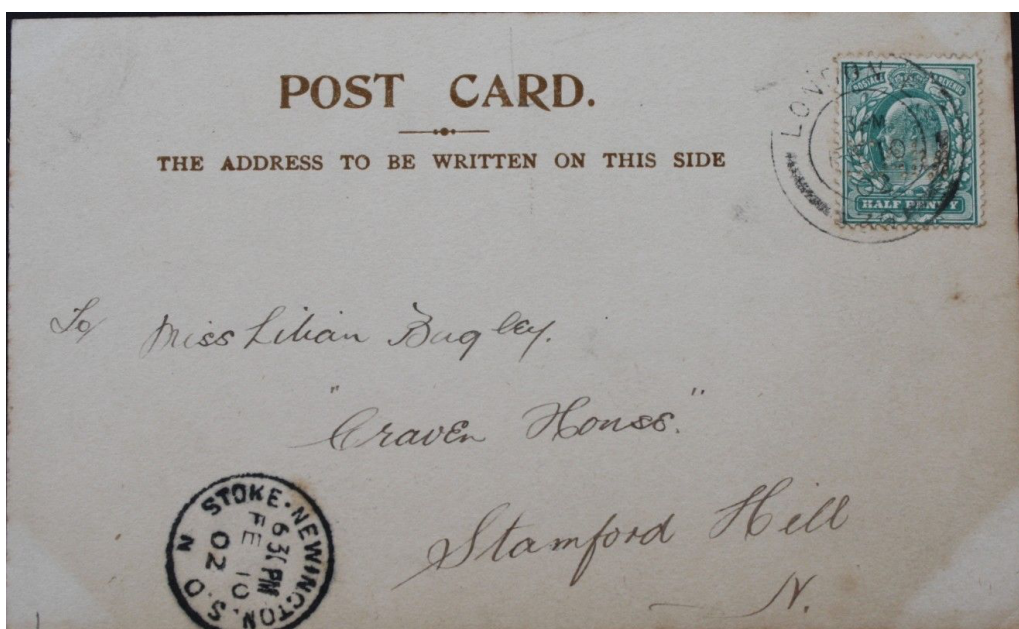 POST CARD.
THE ADDRESS TO BE WRITTEN ON THIS SIDE
LONDON
POSTAGE REVENUE
HALF PENNY
To Miss Lilian Bugley.
"Craven House."
Stamford Hill
N.
STOKE-NEWINGTON S.O N
6 30 PM
FE 10
02